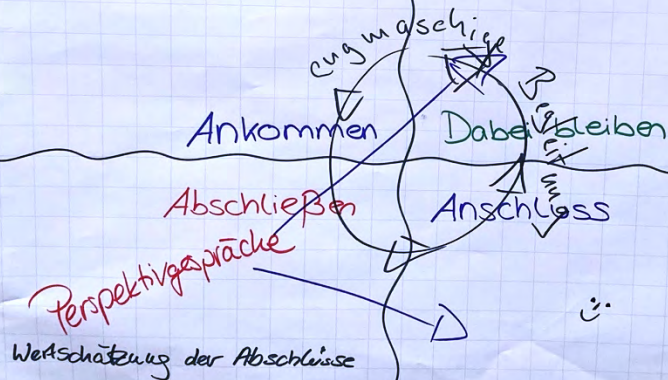 engmaschige
Begleitung
Ankommen
Dabei bleiben
Abschließen
Anschluss
Perspektivgespräche
Wertschätzung der Abschlüsse